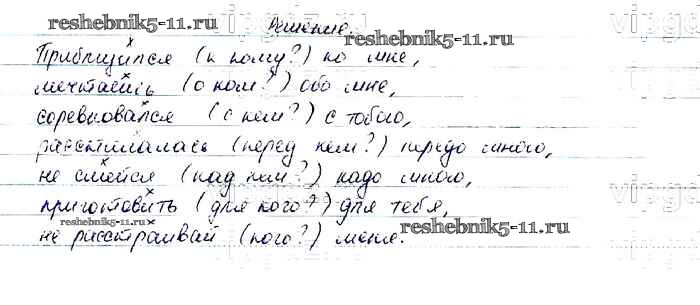 Решение.
reshebnik5-11.ru reshebnik5-11.ru
Приблизился (к кому?) ко мне,
мечтаешь (о ком?) обо мне,
соревновался (с кем?) с тобою,
расстилалась (перед кем?) передо мною,
не смейся (над кем?) надо мною,
приготовить (для кого?) для тебя,
reshebnik5-11.ru reshebnik5-11.ru
не расстраивай (кого?) меня.